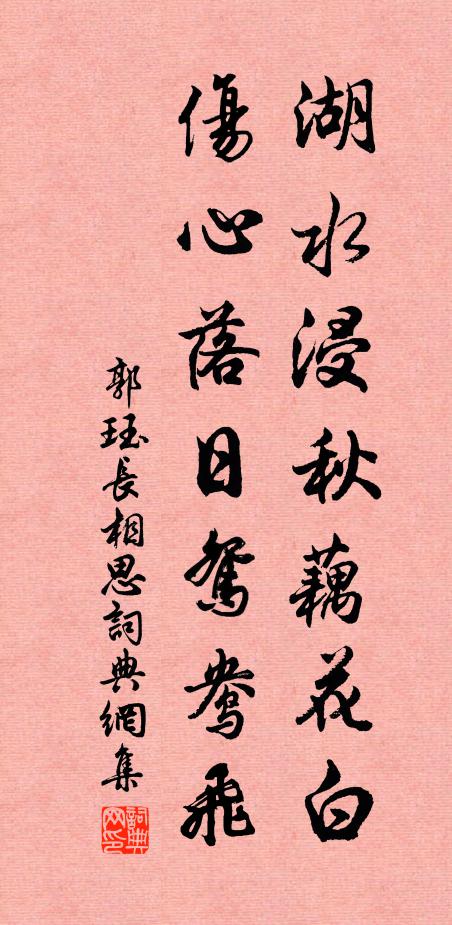 湖水浸秋藕花白
傷心落日鴛鴦飛
郭珏長相思詞典網集
詞典网印